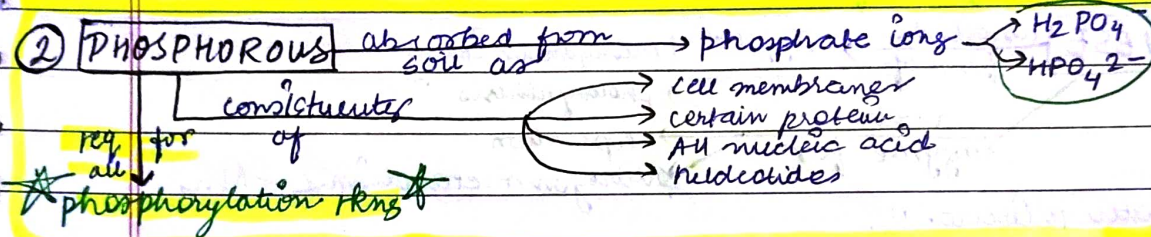 ② PHOSPHOROUS absorbed from soil as → phosphate ions → H₂PO₄
→ HPO₄²⁻
consictuentes of → cell membranes
→ certain protein
→ All nucleic acid
→ nucleotides
req for all
☆ phosphorylation rkns ☆